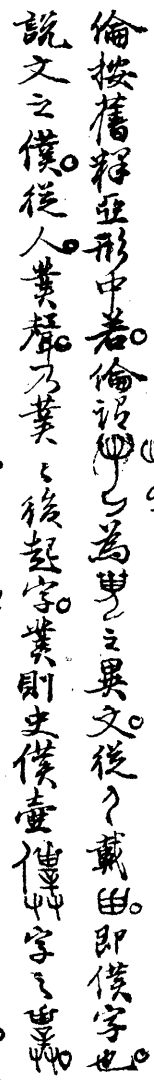 倫按舊釋亞形中若。倫謂為之異文。從戴。即僕字也。
說文之僕。從人。菐聲。乃菐之後起字。菐則史僕壺字之。